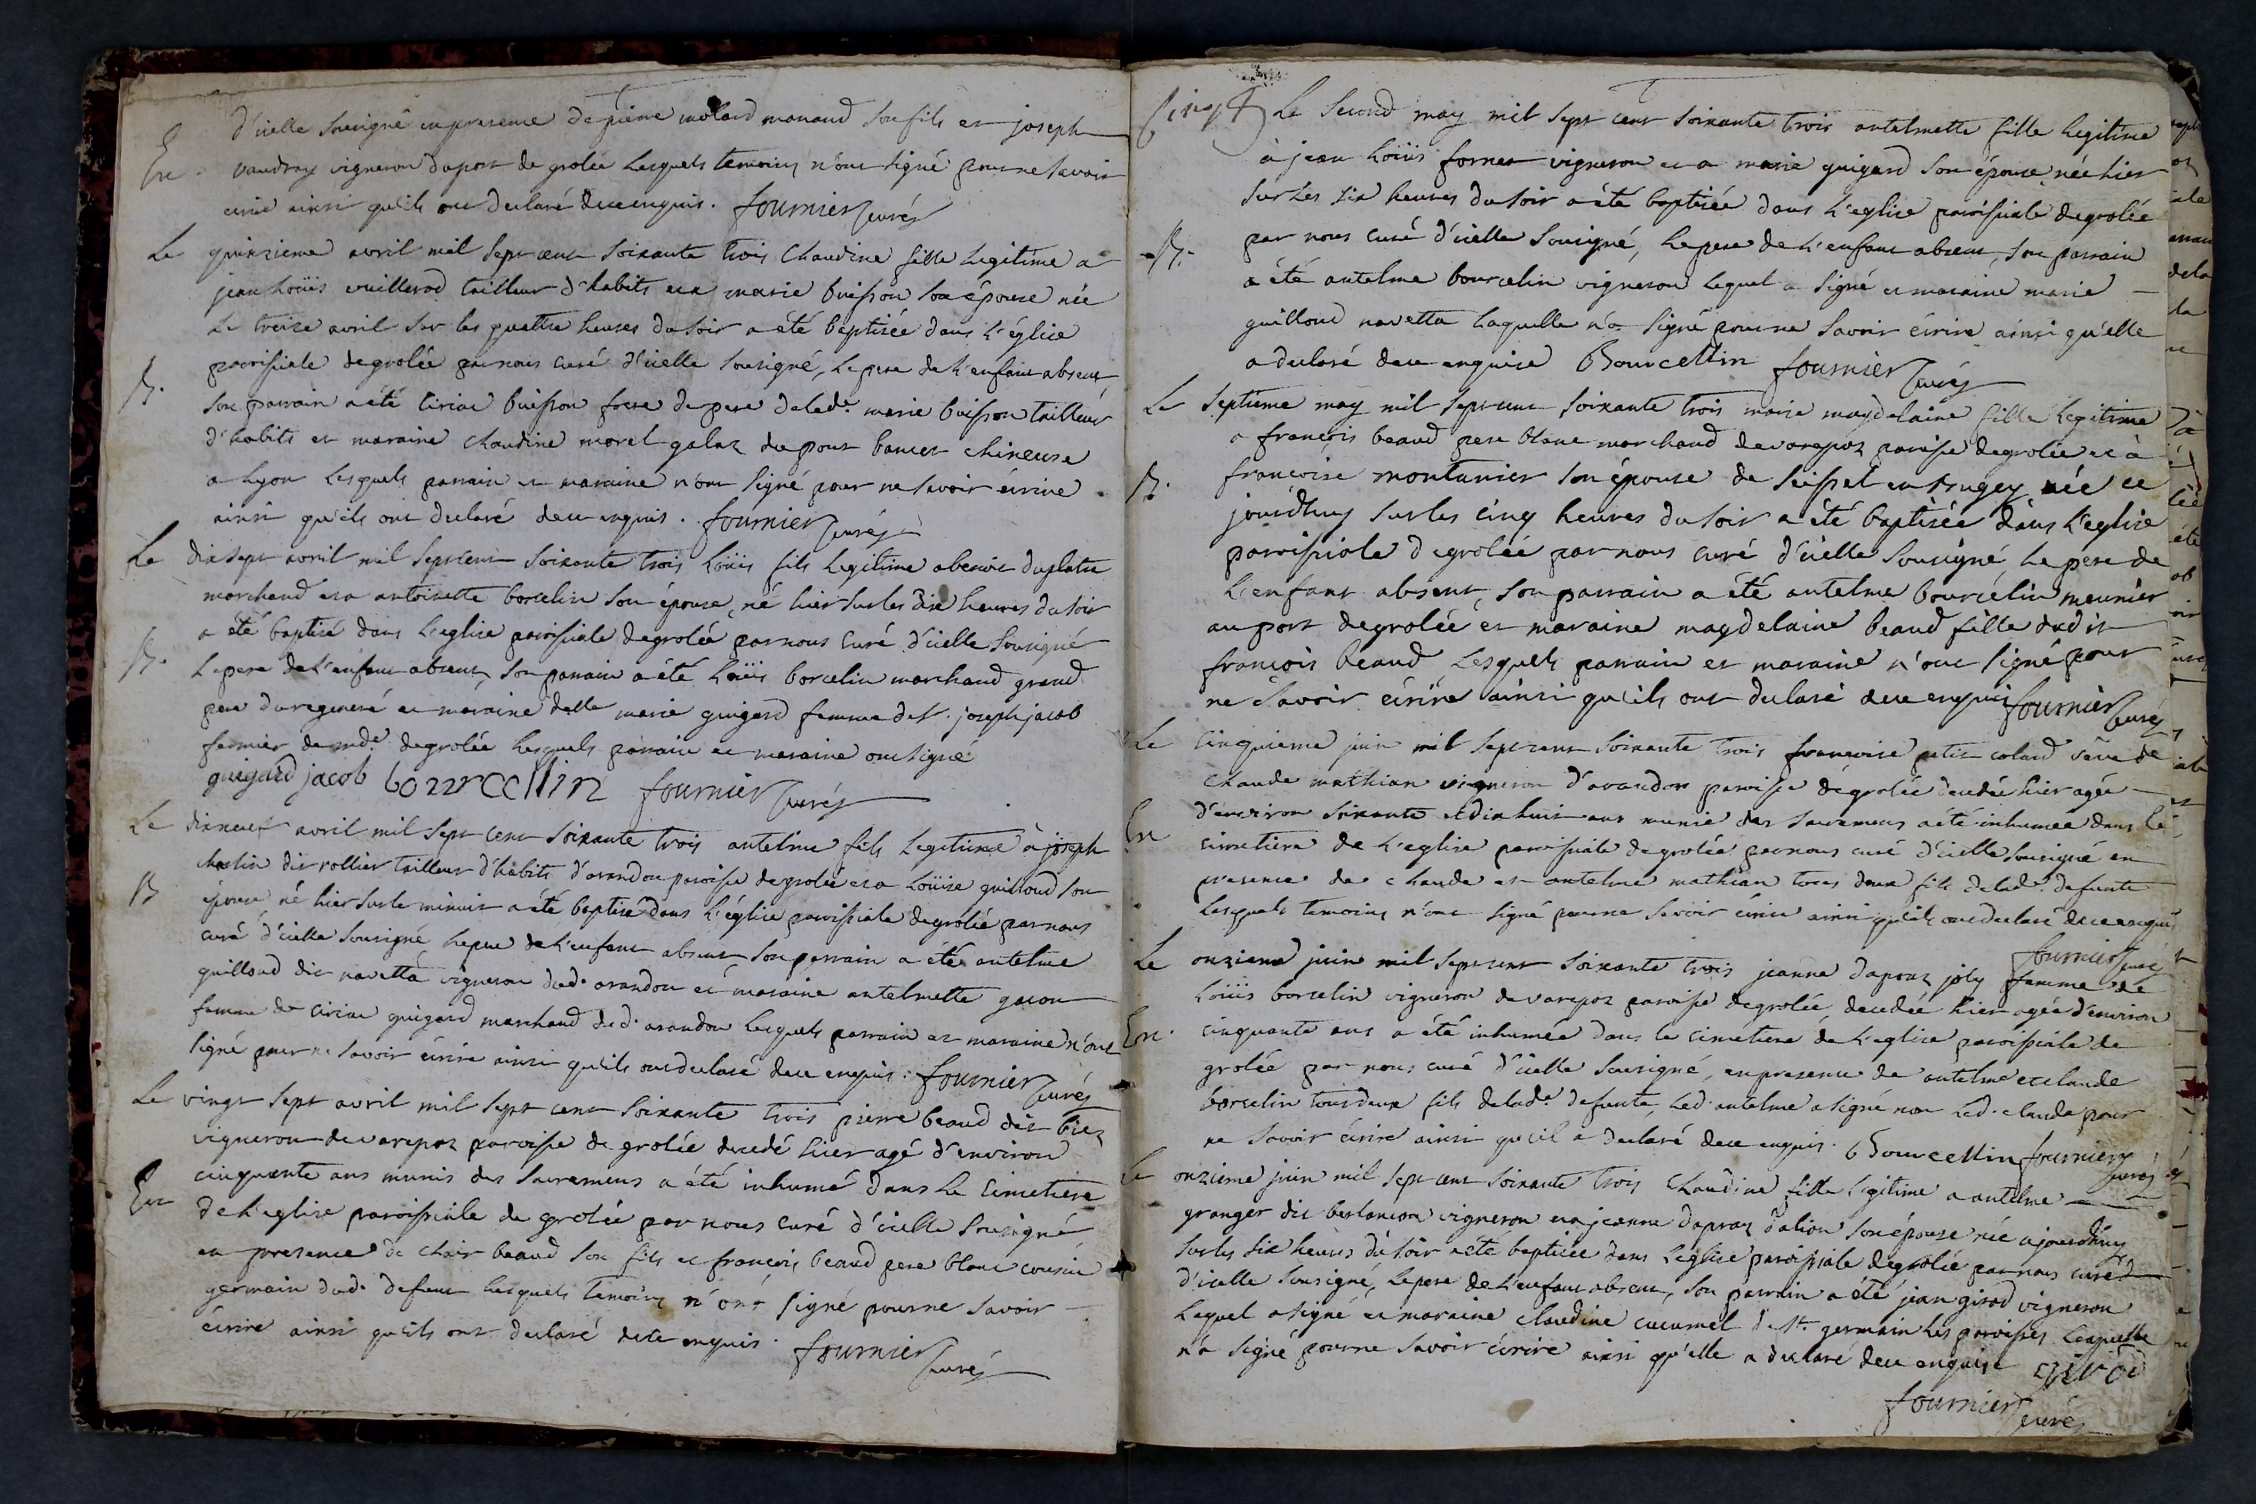 d'icelle sousigné en presence de pierre molard monaud son fils et joseph
En. vaudroy vigneron du port de grolée lesquels temoins n'ont signé pour ne savoir
ecrire ainsi qu'ils ont declaré de ce enquis. fournier curés
Le quinzieme avril mil sept cent soixante trois Claudine fille legitime a
jean Loüis vuillerod tailleur d'habits et a marie buisson son épouse née
le treize avril sur les quattre heures du soir a été baptisée dans l'église
paroissiale de grolée par nous curé d'icelle sousigné, le pere de l'enfant absent
B. son parrain a été Ciriac buisson frere de pere de lad.e marie buisson tailleur
d'habits et maraine Claudine morel galaz du pont bancet chineuse
a Lyon lesquels parrain et maraine n'ont signé pour ne savoir écrire
ainsi qu'ils ont declaré de ce enquis. fournier curés
Le dix sept avril mil sept cent soixante trois Loüis fils legitime a benoit duplatre
marchand et a antoinette borcelin son épouse, né hier sur les dix heures du soir
a été baptisé dans l'eglise paroissiale de grolée par nous curé d'icelle sousigné
B. le pere de l'enfant absent, son parrain a été Loüis borcelin marchand grand
pere du regeneré et maraine delle marie guigard femme de Sr. joseph jacob
fermier de md.e de grolée lesquels parrain et maraine ont signé
guigard jacob bourcellin fournier curés
Le dixneuf avril mil sept cent soixante trois antelme fils legitime à joseph
dit rollier tailleur d'habits d'arandon paroisse de grolée et a Loüise guilloud son
B épouse né hier sur le minuit a été baptisé dans l'église paroissiale de grolée par nous
curé d'icelle sousigné le pere de l'enfant absent son parrain a été antelme
guilloud dit navetta vigneron dud. arandon et maraine antelmette gacon
femme de Ciriac guigard marchand dud. arandon lesquels parrain et maraine n'ont
signé pour ne savoir écrire ainsi qu'ils ont declaré de ce enquis. fournier curés
Le vingt sept avril mil sept cent soixante trois pierre beaud dit biez
vigneron de varepoz paroisse de grolée decedé hier agé d'environ
cinquante ans munis des sacremens a été inhumé dans le Cimetiere
En de l'eglise paroissiale de grolée par nous curé d'icelle sousigné
en presence de clair beaud son fils et françois beaud pere blanc cousin
germain dud. defunt lesquels temoins n'ont signé pour ne savoir
écrire ainsi qu'ils ont declaré de ce enquis. fournier curés
Le second may mil sept cent soixante trois antelmette fille legitime
à jean Loüis fornet vigneron et a marie guigard son épouse née hier
sur les six heures du soir a été baptisée dans l'eglise paroissiale de grolée
B. par nous curé d'icelle sousigné, le pere de l'enfant absent, son parrain
a été antelme bourcelin vigneron lequel a signé et maraine marie
guilloud navetta laquelle n'a signé pour ne savoir écrire ainsi qu'elle
a declaré de ce enquise Bourcellin fournier curés
Le septieme may mil sept cent soixante trois marie magdelaine fille legitime
a françois beaud pere blanc marchand de varepoz paroisse de grolée et à
B. françoise montanier son épouse de seissel en bugey née ce
jourdhuy sur les cinq heures du soir a été baptisée dans l'eglise
paroissiale de grolée par nous curé d'icelle sousigné le pere de
l'enfant absent, son parrain a été antelme bourcelin meunier
au port de grolée et maraine magdelaine beaud fille dudit
françois beaud lesquels parrain et maraine n'ont signé pour
ne savoir écrire ainsi qu'ils ont declaré de ce enquis fournier curés
Le cinquieme juin mil sept cent soixante trois françoise petit colard veuve de
Claude mathian vigneron d'arandon paroisse de grolée decedée hier agée
d'environ soixante et dix huit ans munie des sacremens a été inhumée dans le
En cimetiere de l'eglise paroissiale de grolée par nous curé d'icelle sousigné en
presence de claude et antelme mathian tous deux fils de lad.e defunte
lesquels temoins n'ont signé pour ne savoir écrire ainsi qu'ils ont declaré de ce enquis
fournier curés
Le onzieme juin mil sept cent soixante trois jeanne dapraz joly femme de
Loüis borcelin vigneron de varepoz paroisse de grolée, decedée hier agée d'environ
En. cinquante ans a été inhumée dans le cimétiere de l'eglise paroissiale de
grolée par nous curé d'icelle sousigné, en presence de antelme et claude
borcelin tous deux fils de lad.e defunte led. antelme a signé non led. claude pour
ne savoir écrire ainsi qu'il a declaré de ce enquis. Bourcellin fournier curés
Le onzieme juin mil sept cent soixante trois Claudine fille legitime a antelme
granger dit berlancon vigneron et a jeanne dapraz dalion son épouse née ajourdhuy
sur les six heures du soir a été baptisée dans l'église paroissiale de grolée par nous curé
d'icelle sousigné, le pere de l'enfant absent, son parrain a été jean girod vigneron
lequel a signé et maraine Claudine cucumel de St. germain les paroisses laquelle
n'a signé pour ne savoir écrire ainsi qu'elle a declaré de ce enquise girod
fournier curés